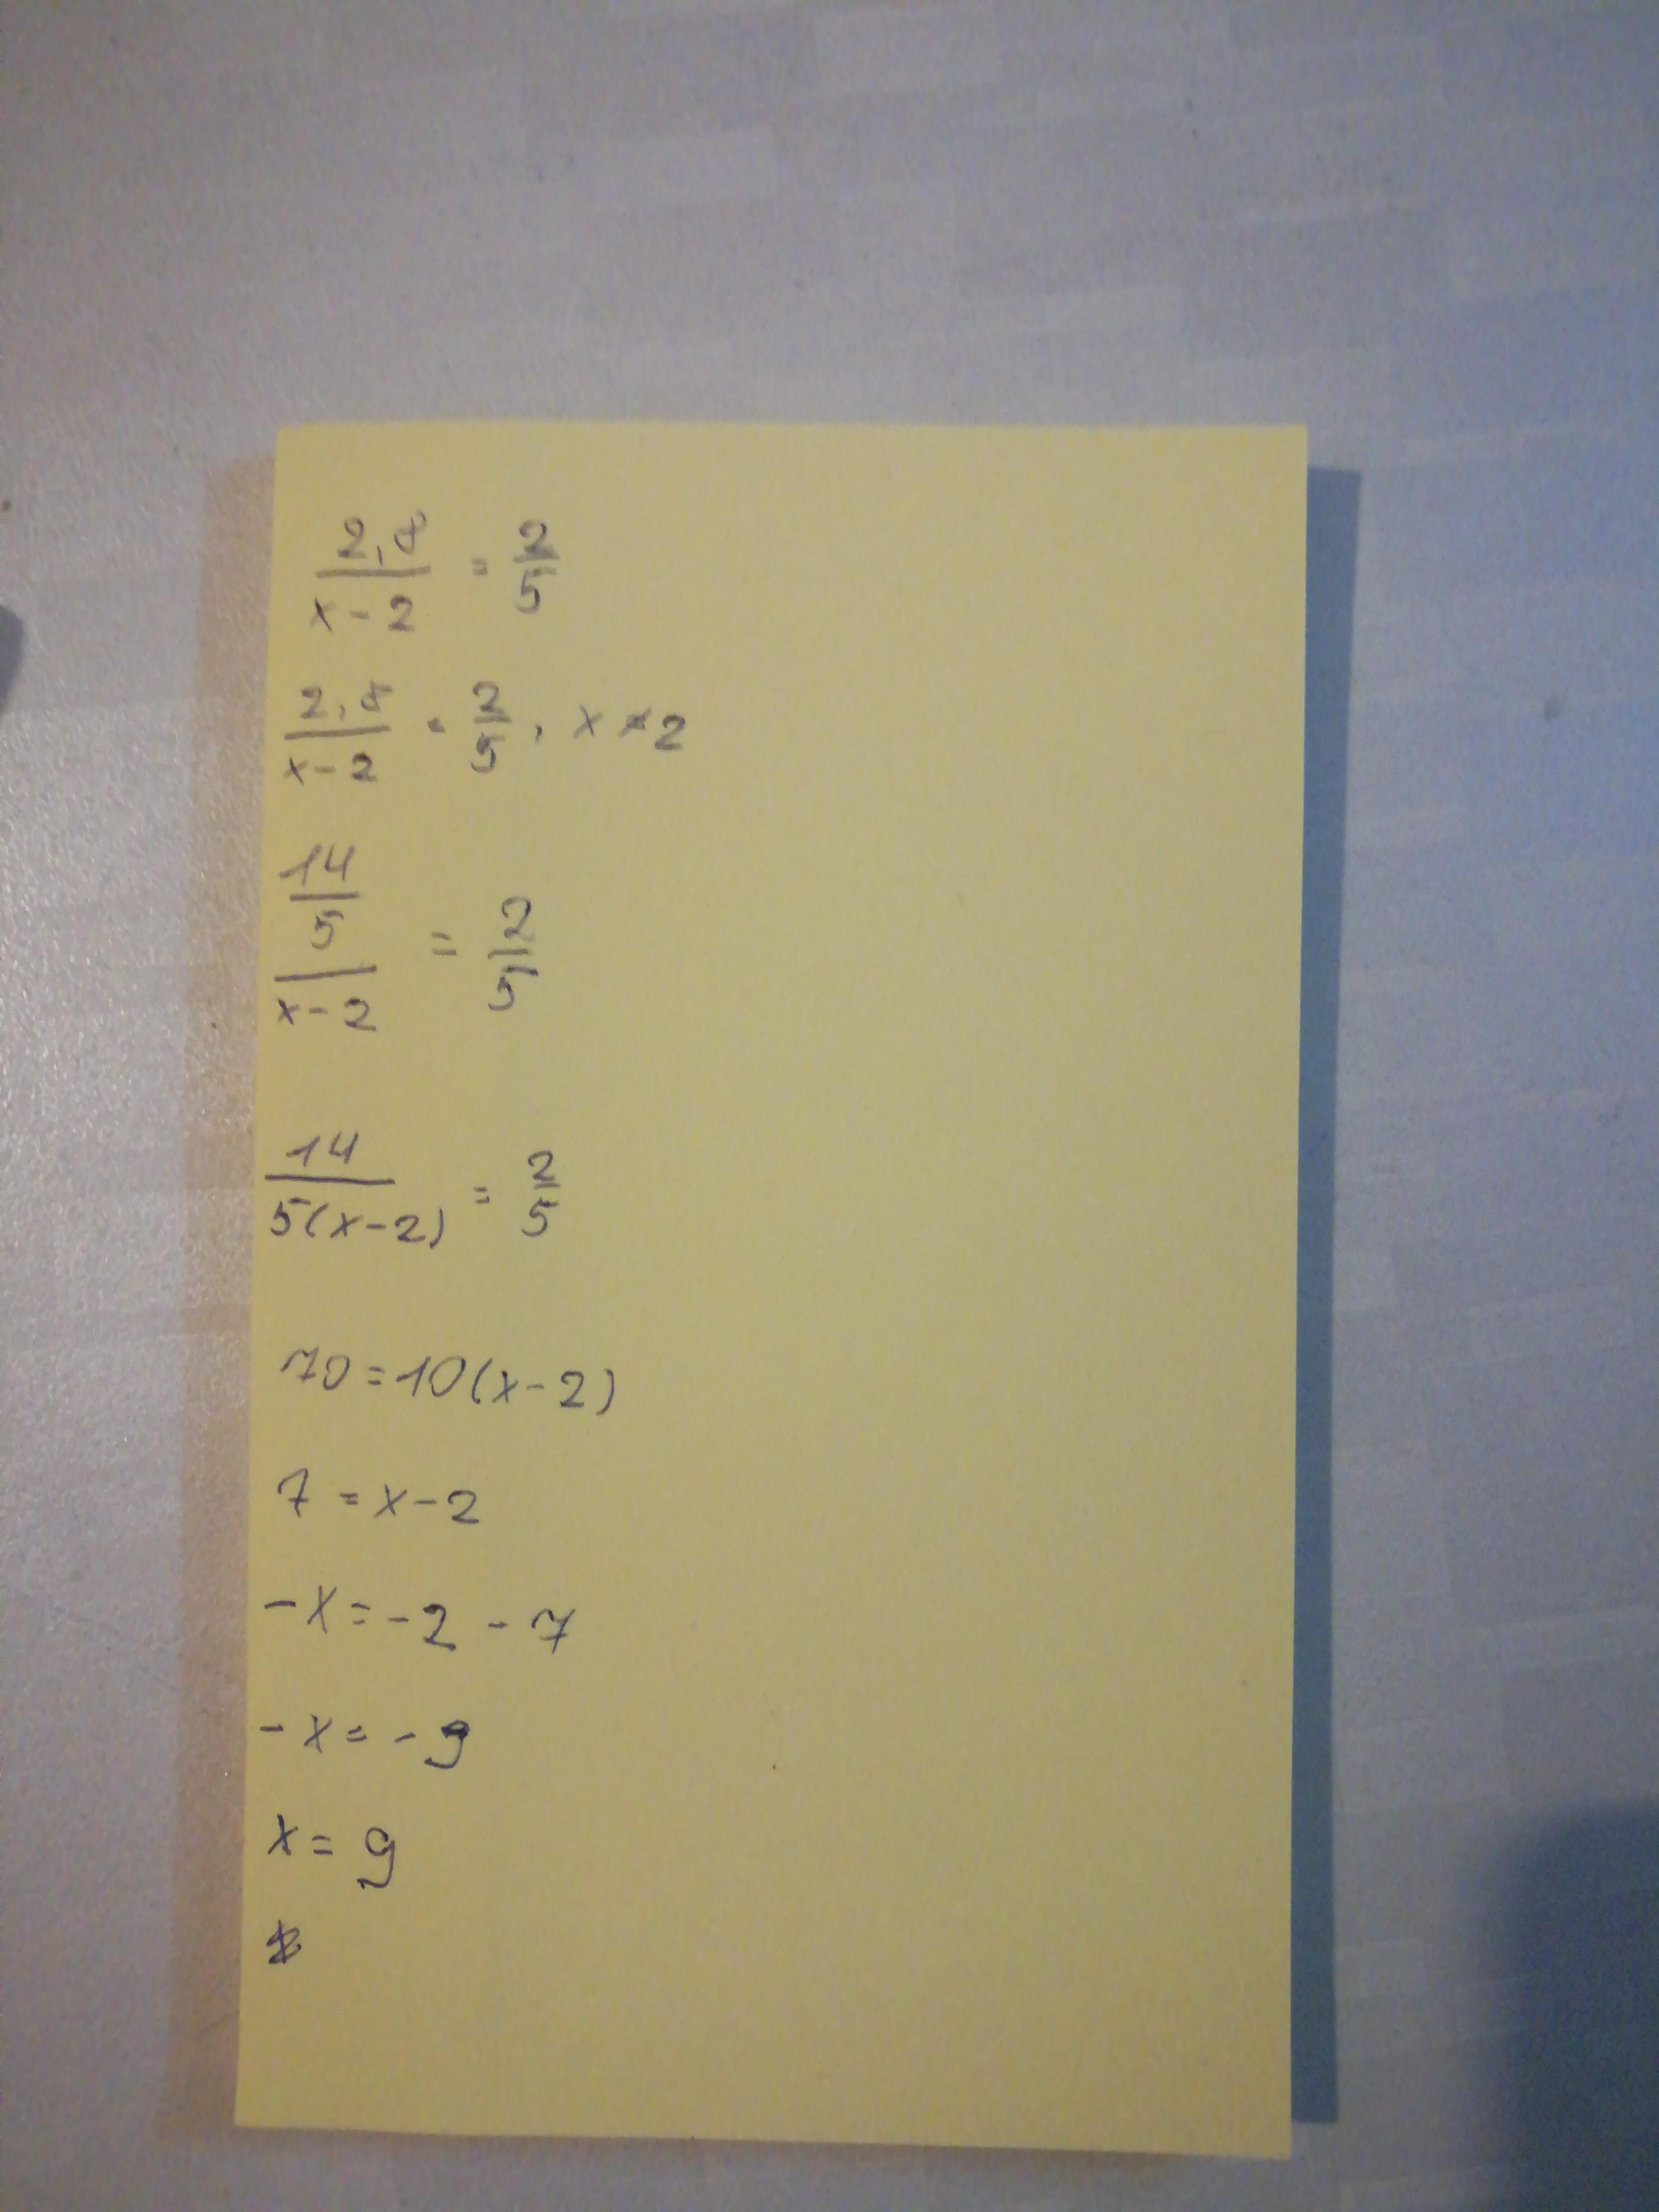 2,8/(x-2) = 2/5
2,8/(x-2) = 2/5, x ≠ 2
(14/5)/(x-2) = 2/5
14/(5(x-2)) = 2/5
70=10(x-2)
7 = x-2
-x=-2-7
-x=-9
x=9